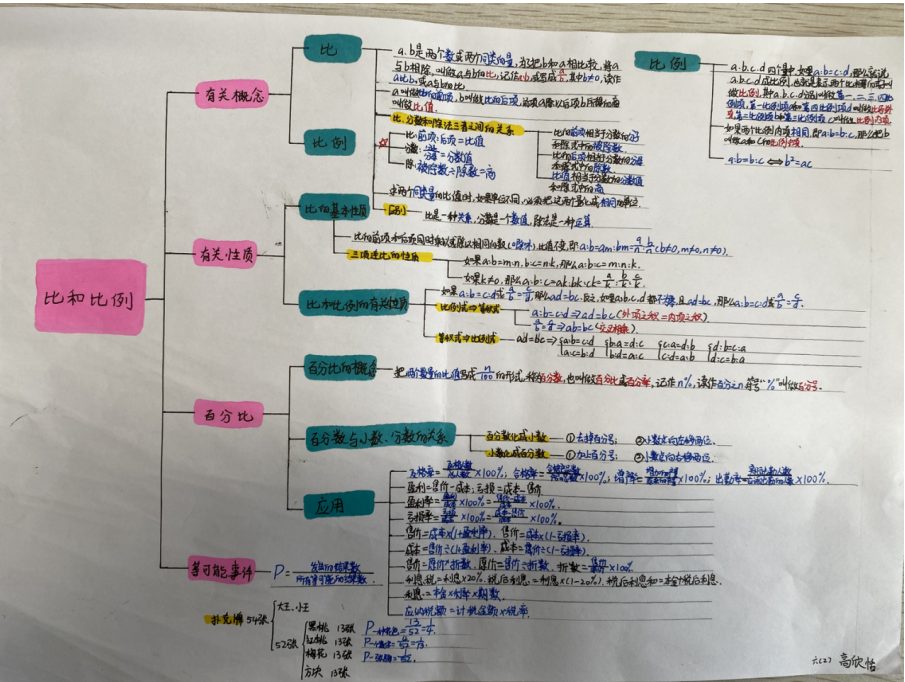 比和比例
有关概念
比
a、b是两个数或两个同类量,为了把b和a相比较,将a
与b相除,叫做a与b的比,记作a:b,或写成a/b,其中b≠0,读作
a比b,或a与b的比
a叫做比的前项,b叫做比的后项,前项a除以后项b所得的商
叫做比值.
比、分数和除法三者之间的关系
比:前项:后项=比值
分数:分子/分母=分数值
除:被除数÷除数=商
比的前项相当于分数的分子
和除式中的被除数
比的后项相当于分数的分母
和除式中的除数
比值相当于分数的分数值
和除式中的商
求两个同类量的比值时,如果单位不同,必须把这两个量化成相同的单位.
区别
比是一种关系,分数是一个数值,除法是一种运算.
比例
比例
a.b.c.d四个量中,如果a:b=c:d,那么就说
a.b.c.d成比例,也就是表示两个比相等的式子叫
做比例,其中a.b.c.d分别叫做第一、二、三、四比
例项,第一比例项a和第四比例项d叫做比例外
项,第二比例项b和第三比例项c叫做比例内项
如果两个比例内项相同,即a:b=b:c,那么把b
叫做a和c的比例中项.
a:b=b:c⟺b²=ac
有关性质
比的基本性质
比的前项和后项同时乘以或除以相同的数(0除外),比值不变,即a:b=am:bm=a/n:b/n(b≠0,m≠0,n≠0).
三项连比的性质
如果a:b=m:n,b:c=n:k,那么a:b:c=m:n:k.
如果k≠0,那么a:b:c=ak:bk:ck=a/k:b/k:c/k.
比和比例的有关性质
如果a:b=c:d或a/b=c/d,那么ad=bc.反之,如果a,b,c,d都不为零,且ad=bc,那么a:b=c:d或a/b=c/d.
比例式⇒等积式
a:b=c:d⇒ad=bc(外项之积=内项之积)
等积式⇒比例式
ad=bc⇒ a:b=c:d b:a=d:c c:a=d:b d:b=c:a
a:c=b:d b:d=a:c c:d=a:b d:c=b:a
百分比
百分比的概念
把两个数量的比值写成n/100的形式,称为百分数,也叫做百分比或百分率,记作n%,读作百分之n.符号"%"叫做百分号.
百分数与小数、分数的关系
百分数化成小数 ①去掉百分号; ②小数点向左移两位.
小数化成百分数 ①加上百分号; ②小数点向右移两位.
应用
及格率=及格人数/总人数×100%;合格率=
盈利=售价-成本;亏损=成本-售价
盈利率=盈利/成本×100%=售价-成本/成本×100%.
亏损率=亏损/成本×100%=成本-售价/成本×100%.
售价=成本×(1+盈利率),售价=成本×(1-亏损率).
成本=售价÷(1+盈利率),成本=售价÷(1-亏损率).
售价=原价×折数,原价=售价÷折数,折数=售价/原价×100%
利息税=利息×20%,税后利息=利息×(1-20%),税后利息和=本金+税后利息.
利息=本金×利率×期数.
应纳税额=计税金额×税率.
等可能事件
P=发生的结果数/所有等可能的结果数
扑克牌54张
大王、小王
52张
黑桃 13张
红桃 13张
梅花 13张
方块 13张
P一种花色=13/52=1/4.
六(2) 高欣怡